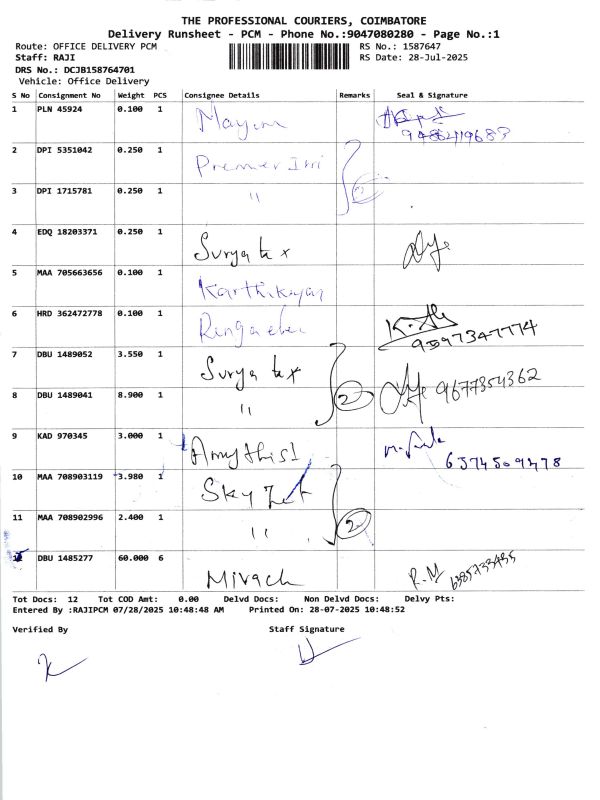 THE PROFESSIONAL COURIERS, COIMBATORE
Delivery Runsheet - PCM - Phone No.:9047080280 - Page No.:1
Route: OFFICE DELIVERY PCM RS No.: 1587647
Staff: RAJI RS Date: 28-Jul-2025
DRS No.: DCJB158764701
Vehicle: Office Delivery
S No Consignment No Weight PCS Consignee Details Remarks Seal & Signature
1 PLN 45924 0.100 1 Mayim
9486249683
2 DPI 5351042 0.250 1 Premier Imi
3 DPI 1715781 0.250 1 " 2
4 EDQ 18203371 0.250 1 Surya tex
5 MAA 705663656 0.100 1 Karthikeyan
6 HRD 362472778 0.100 1
9597347774
7 DBU 1489052 3.550 1 Surya tex
8 DBU 1489041 8.900 1 " 2 9677354362
9 KAD 970345 3.000 1 Amythist
6374509478
10 MAA 708903119 3.980 1 Sky
11 MAA 708902996 2.400 1 " 2
12 DBU 1485277 60.000 6 Mirach R.M 6385733435
Tot Docs: 12 Tot COD Amt: 0.00 Delvd Docs: Non Delvd Docs: Delvy Pts:
Entered By :RAJIPCM 07/28/2025 10:48:48 AM Printed On: 28-07-2025 10:48:52
Verified By Staff Signature